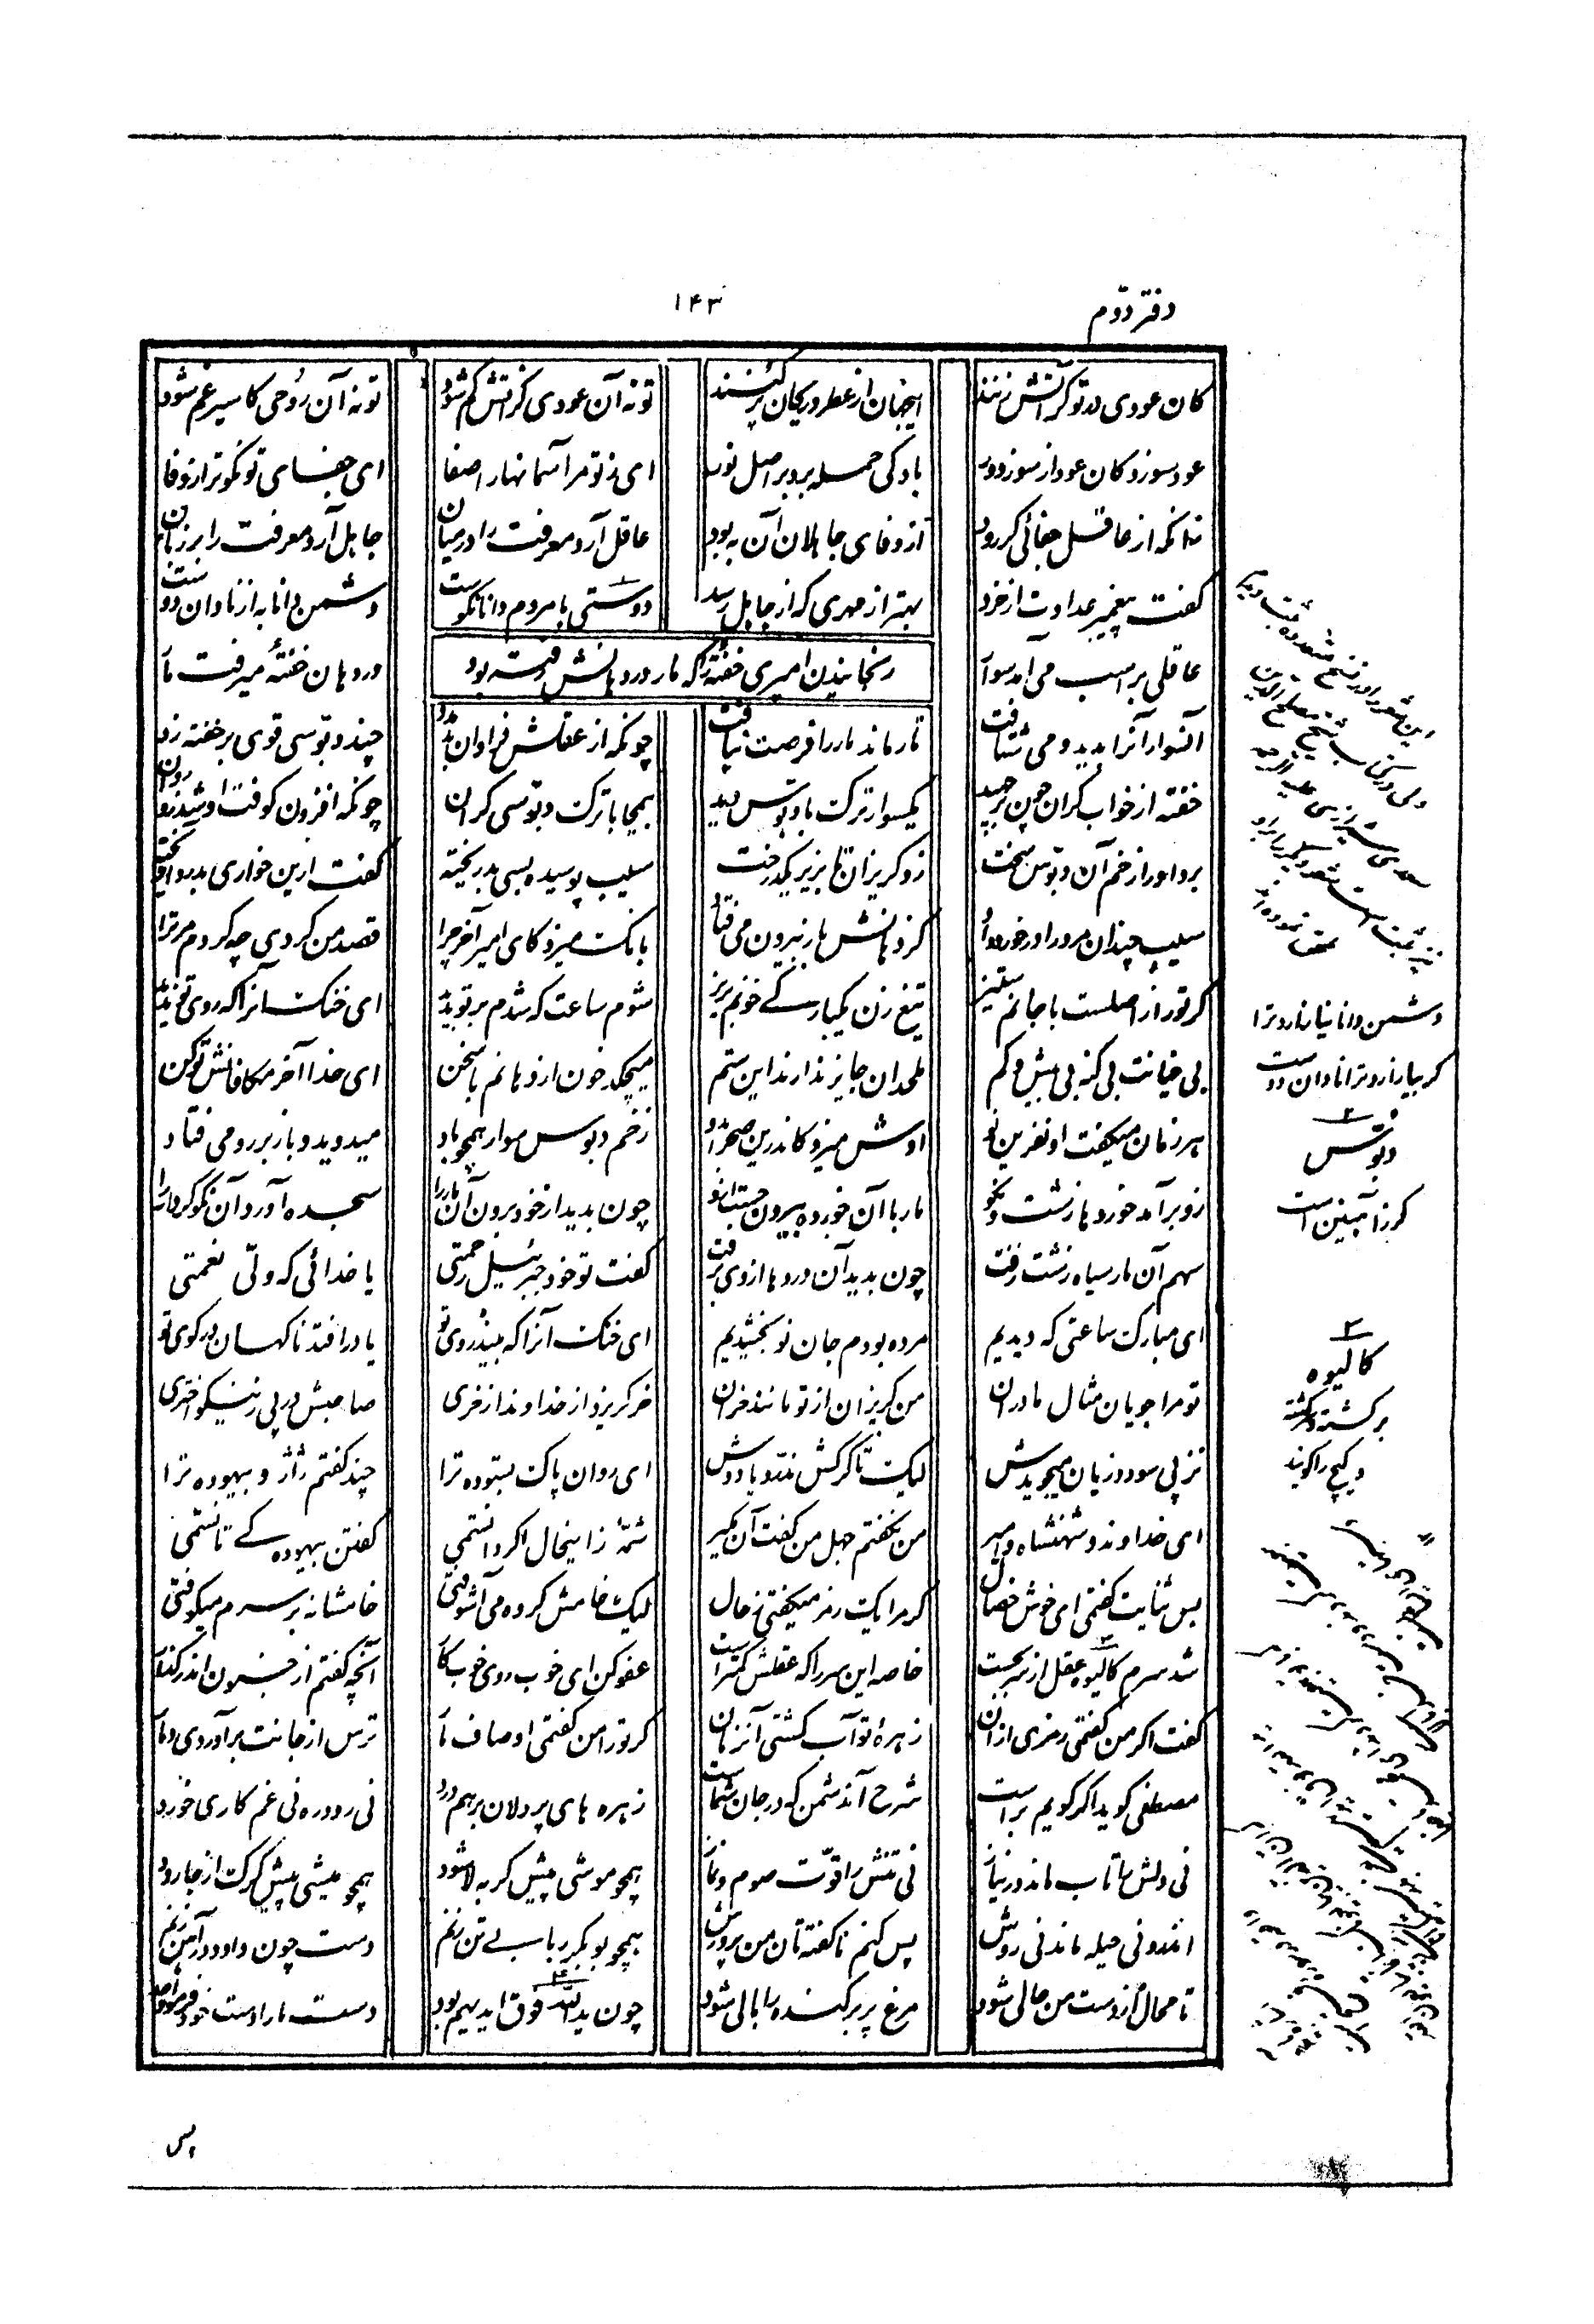 دفتر دوّم
۱۴۳
کان عودی در تو گر آتش زنند اینجهان از عطر و ریحان پر کنند تو نه آن عودی کز آتش کم شود تو نه آن روحی کاسیر غم شود
عود سوزد کان عود از سوز دور باد کی حمله برد بر اصل نور ای ز تو مر آسمانها را صفا ای جفای تو نکوتر از وفا
زانکه از عاقل جفائی گر رود از وفای جاهلان آن به بود عاقل آرد معرفت را در میان جاهل آرد معرفت را بر زبان
گفت پیغمبر عداوت از خرد بهتر از مهری که از جاهل رسد دوستی با مردم دانا نکوست دشمن دانا به از نادان دوست
رنجانیدن امیری خفتهٔ را که مار در دهانش رفته بود
عاقلی بر اسب می آمد سوار در دهان خفتهٔ میرفت مار
آنسوار آنرا بدید و می شتافت تا رماند مار را فرصت نیافت چونکه از عقلش فراوان بد مدد چند دبّوسی قوی بر خفته زد
خفته از خواب گران چون برجهید یکسوار ترک با دبّوس دید بیمحابا ترک دبّوسی گران چونکه افزون کوفت او شد زو روان
برد او را زخم آن دبّوس سخت زو گریزان تا بزیر یکدرخت سیب پوسیده بسی بد ریخته گفت ازین خور ای بدرد آویخته
سیب چندان مرد را در خورد داد کز دهانش باز بیرون می فتاد بانگ میزد کای امیر آخر چرا قصد من کردی چه کردم مر ترا
گر تو را ز اصلست با جانم ستیز تیغ زن یکبارگی خونم بریز شوم ساعت که شدم بر تو پدید ای خنک آنرا که روی تو ندید
بی خیانت بی گنه بی بیش و کم ملحدان جایز ندارند این ستم میچکد خون از دهانم با سخن ای خدا آخر مکافاتش تو کن
هر زمان میگفت او نفرین نو اوش میزد کاندرین صحرا بدو زخم دبّوس و سوار همچو باد میدوید و باز بر رو می فتاد
زو برآمد خوردها زشت و نکو مار با آن خورده بیرون جست ازو چون بدید از خود برون آن مار را سجده آورد آن نکو کردار را
سهم آن مار سیاه زشت زفت چون بدید آن دردها از وی برفت گفت تو خود جبرئیل رحمتی یا خدائی که ولیّ نعمتی
ای مبارک ساعتی که دیدیم مرده بودم جان نو بخشیدیم ای خنک آنرا که بیند روی تو یا در افتد ناگهان در کوی تو
تو مرا جویان مثال مادران من گریزان از تو مانند خران خر گریزد از خداوند از خری صاحبش در پی ز نیکو اختری
نز پی سود و زیان میجویدش لیک تا گرگش ندرد یا ددش ای روان پاک بستوده ترا چند گفتم ژاژ و بیهوده ترا
ای خداوند و شهنشاه و امیر من نگفتم جهل من گفت آن مگیر شمّهٔ زاینحال اگر دانستمی گفتن بیهوده کی تانستمی
بس ثنایت گفتمی ای خوش خصال گر مرا یک رمز میگفتی ز حال لیک خامش کرده می آشوفتی خامشانه بر سرم میکوفتی
شد سرم کالیوه عقل از سر بجست خاصه این سر را که عقلش کمتر است عفو کن ای خوب روی خوب کار آنچه گفتم از جنون اندر گذار
گفت اگر من گفتمی رمزی از آن زهرهٔ تو آب گشتی آنزمان گر تو را من گفتمی اوصاف مار ترس از جانت بر آوردی دمار
مصطفی گوید اگر گویم براست شرح آندشمن که در جان شماست زهره های پر دلان بر هم درد نی رود ره نی غم کاری خورد
نی دلش را تاب ماند در نیاز نی تنش را قوّت صوم و نماز همچو موشی پیش گربه لا شود همچو میشی پیش گرگ از جا رود
اندرو نی حیله ماند نی روش پس کنم ناگفته تان من پرورش همچو بوبکر ربابی تن زنم دست چون داود در آهن زنم
تا محال از دست من حالی شود مرغ پر بر کنده را بالی شود چون ید الله فوق ایدیهم بود دست ما را دست خود فرمود احد
دشمن دانا نیازارد ترا
گر بیازارد ترا نادان دوست
۲
دبّوس
گرز آهنین است
۳
کالیوه
برگشته و سرگشته
و گیج را گویند
پس